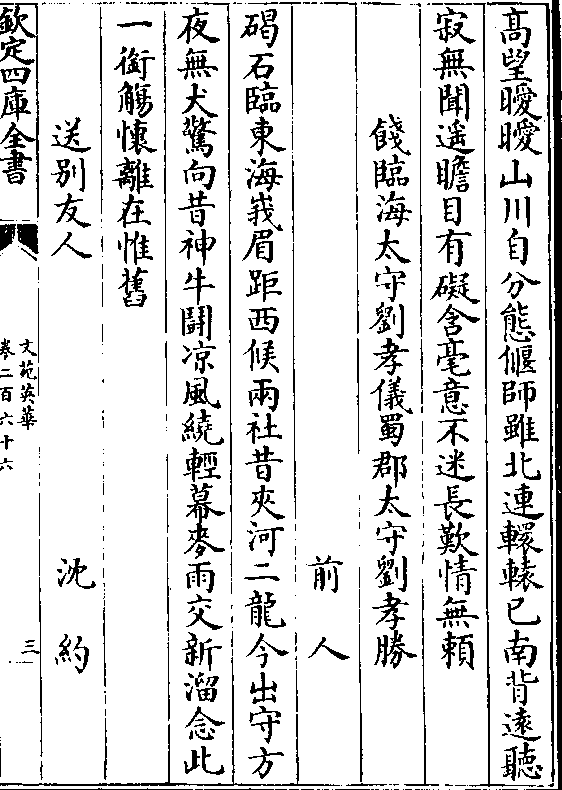 高望曖曖山川自分態偃師雖北連轘轅已南背遠聽
寂無聞遥瞻目有礙含毫意不迷長歎情無賴
餞臨海太守劉孝儀蜀郡太守劉孝勝
前人
碣石臨東海峩眉距西候兩社昔夾河二龍今出守方
夜無犬驚向昔神牛鬭凉風繞輕幕麥雨交新溜念此
一銜觴懷離在惟舊
送别友人 沈約
欽定四庫全書
文苑英華
卷二百六十六
三